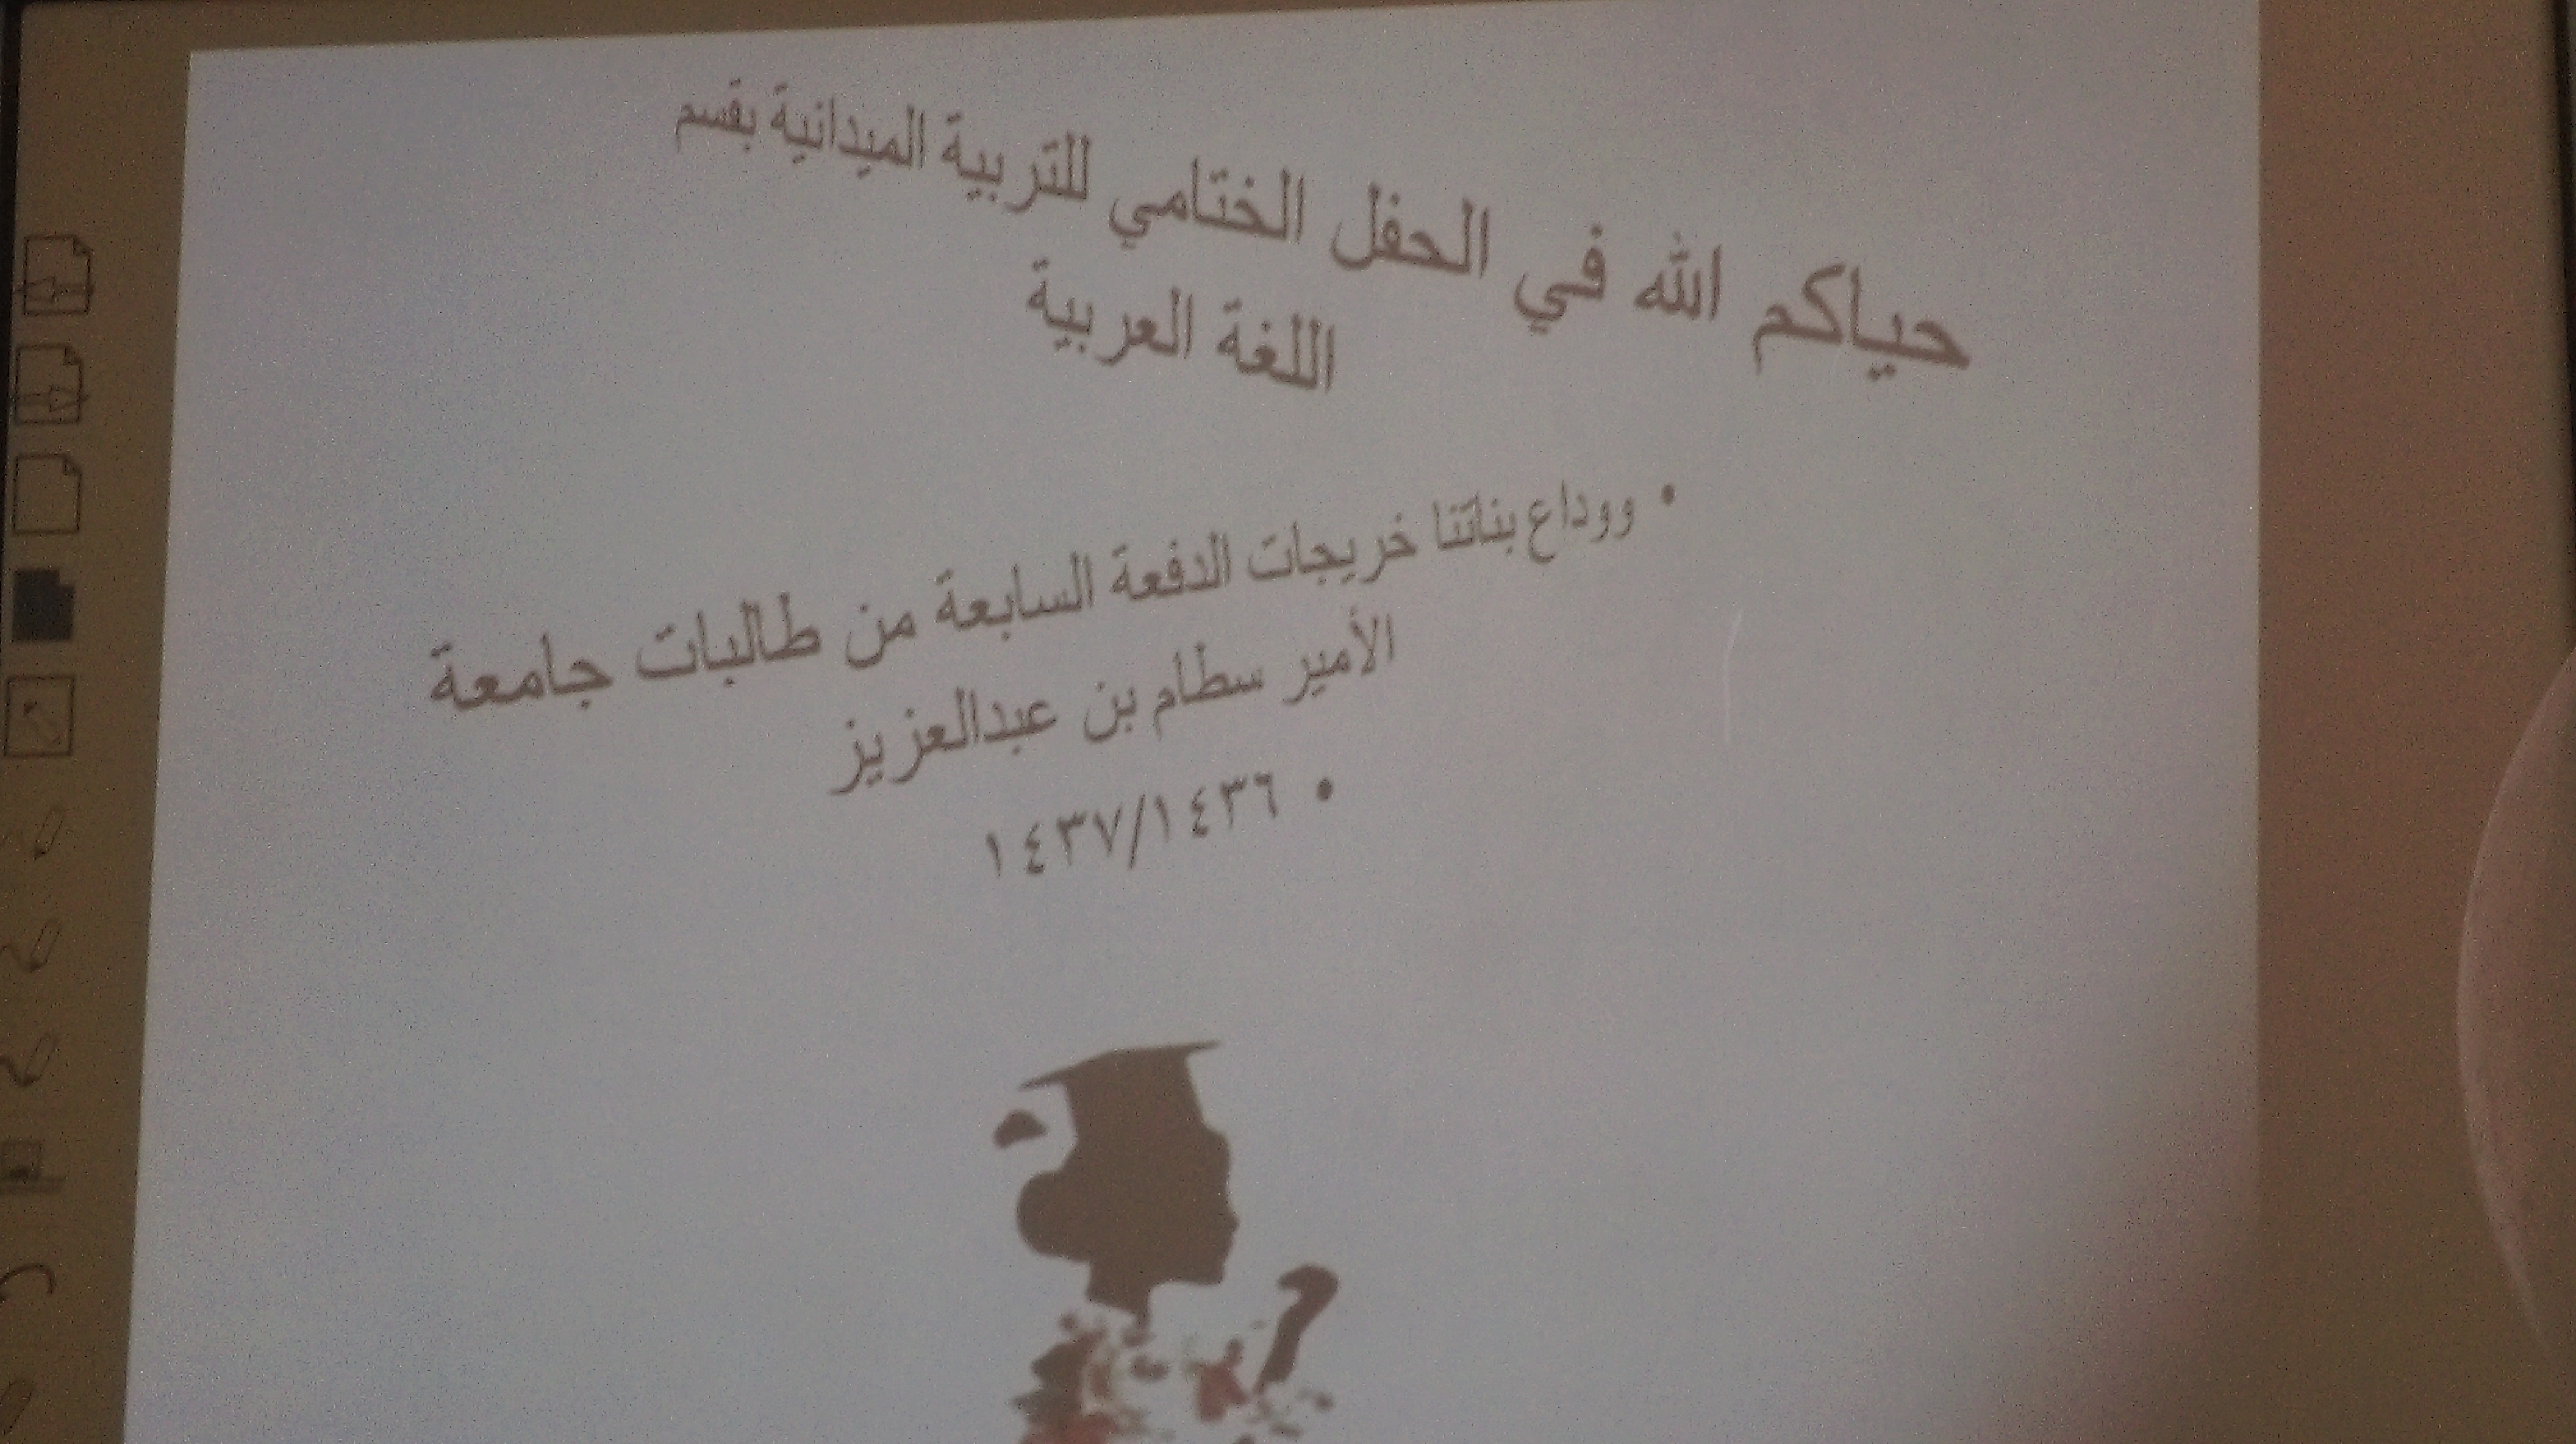 حياكم الله في الحفل الختامي للتربية الميدانية بقسم
اللغة العربية
• ووداع بناتنا خريجات الدفعة السابعة من طالبات جامعة
الأمير سطام بن عبدالعزيز
• ١٤٣٧/١٤٣٦